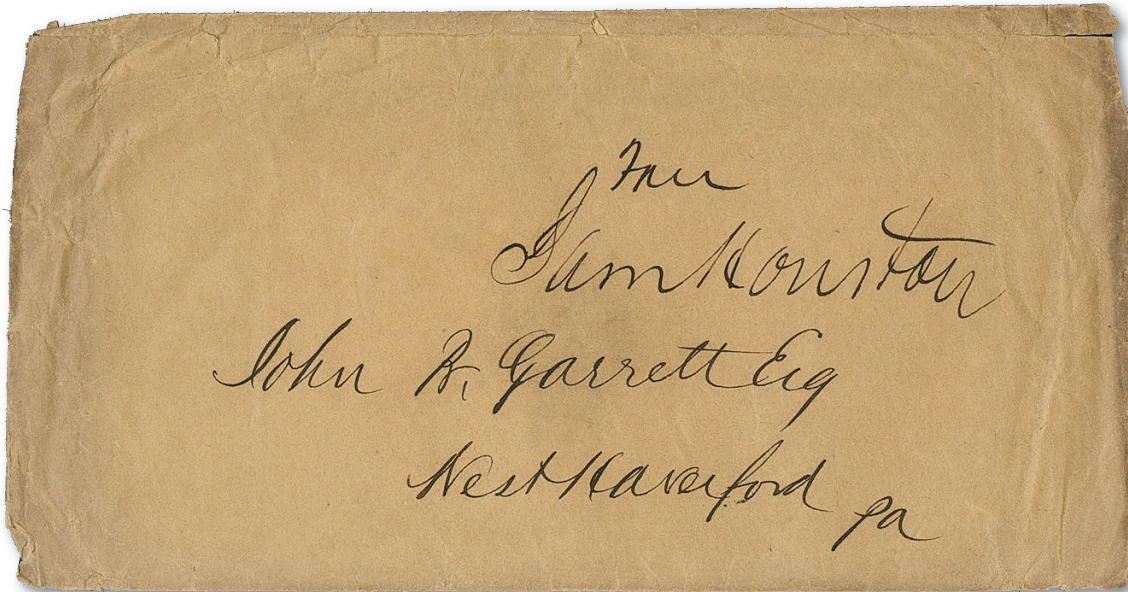 Free
Sam Houston
John B. Garrett Esq
West Haverford
Pa